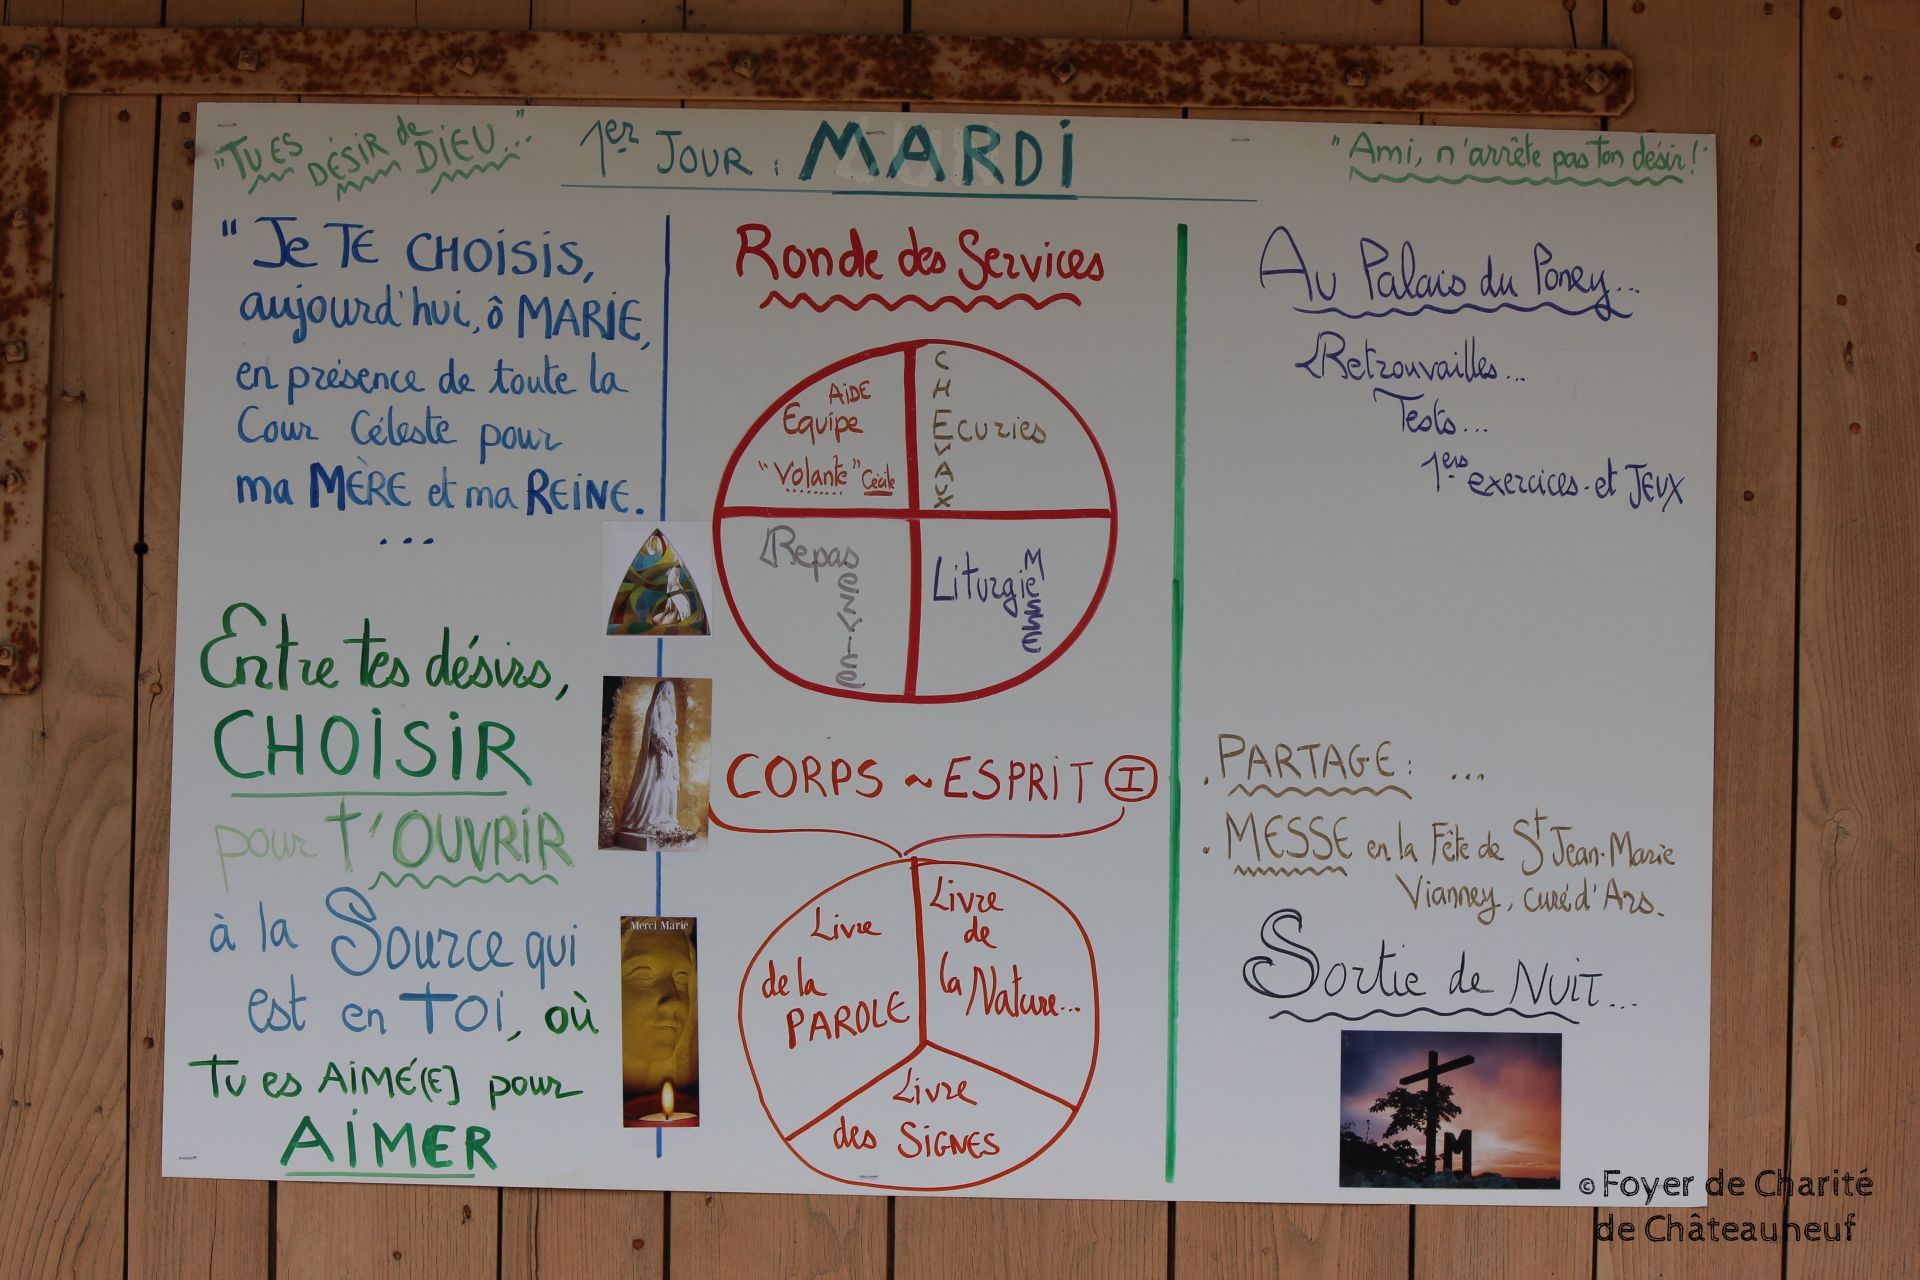 "TU ES DÉSIR de DIEU..."
1er JOUR : MARDI
"Ami, n'arrête pas ton désir!"
"Je TE CHOISIS,
aujourd'hui, ô MARIE,
en présence de toute la
Cour Céleste pour
ma MÈRE et ma REINE.
...
Entre tes désirs,
CHOISIR
pour t'OUVRIR
à la Source qui
est en TOI, où
Tu es AIMÉ(E] pour
AIMER
Merci Marie
Ronde des Services
AIDE
Equipe
"Volante" Cécile
CHEVAUX
Ecuries
Repas
Liturgie
MESSE
CORPS ~ ESPRIT I
Livre
de la
PAROLE
Livre
de
la Nature...
Livre
des SIGNES
Au Palais du Poney...
Retrouvailles...
Tests...
1ers exercices et JEUX
. PARTAGE : ...
. MESSE en la Fête de St Jean-Marie
Vianney, curé d'Ars.
Sortie de NUIT...
M
© Foyer de Charité
de Châteauneuf